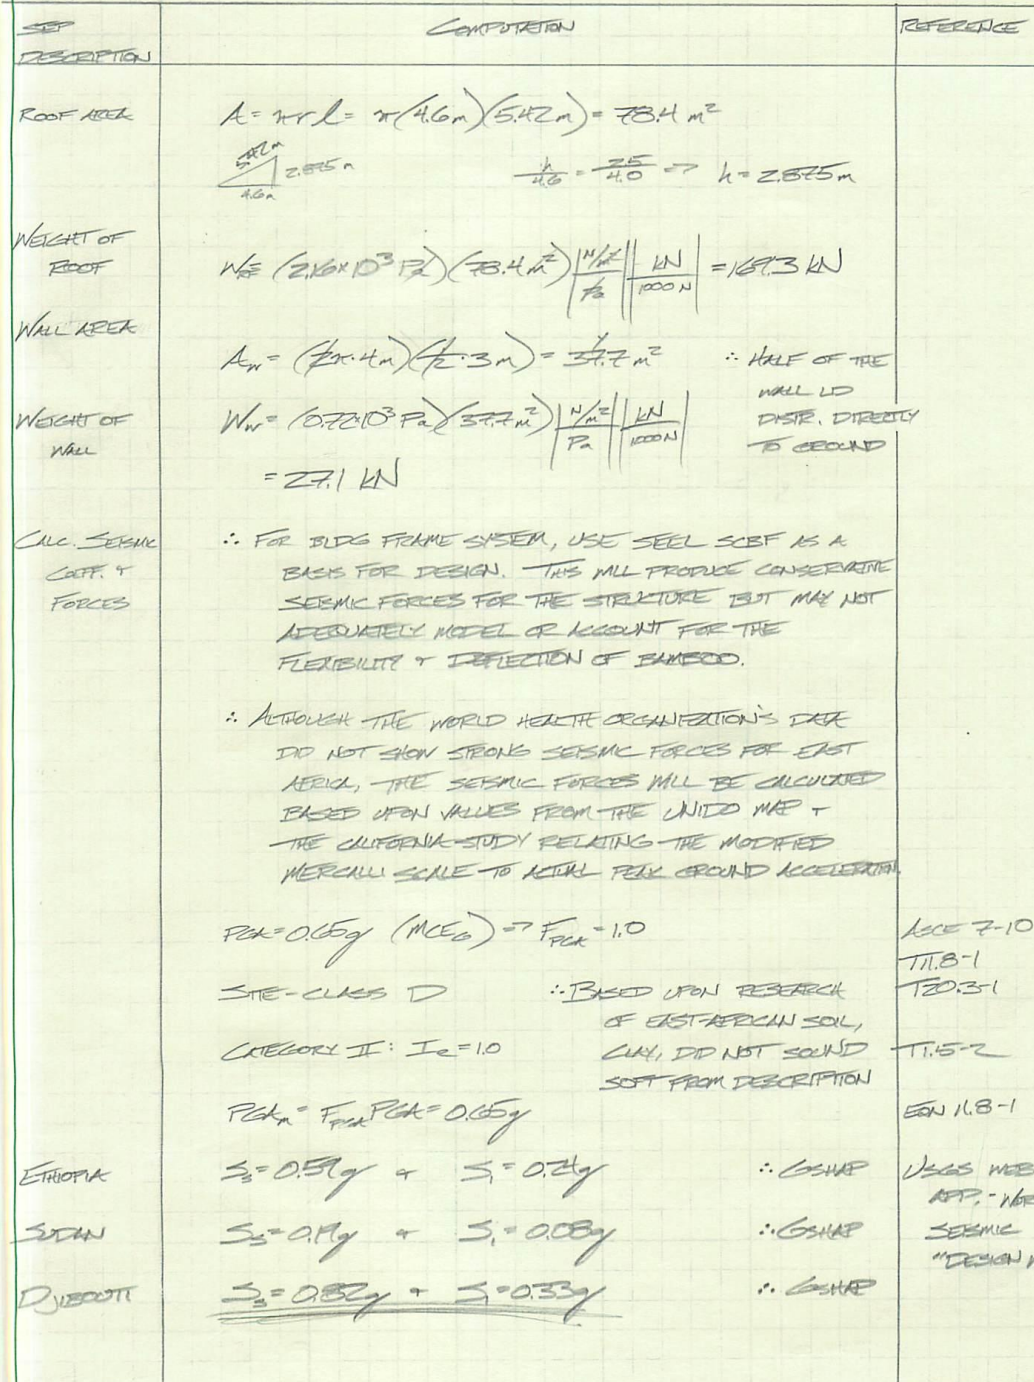 STEP DESCRIPTION COMPUTATION REFERENCE
ROOF AREA A = πrl = π(4.6m)(5.42m) = 78.4 m²
5.42m 2.875m 4.6m h/4.6 = 2.5/4.0 => h = 2.875m
WEIGHT OF ROOF (2.16×10³ Pa)(78.4 m²) |N/m²/Pa| |kN/1000N| = 169.3 kN
WALL AREA
A_w = (2π·4m)(½·3m) = 37.7 m² ∴ HALF OF THE
WALL LD
WEIGHT OF WALL W_w = (0.72·10³ Pa)(37.7m²) |N/m²/Pa| |kN/1000N| DISTR. DIRECTLY
TO GROUND
= 27.1 kN
CALC. SEISMIC ∴ FOR BLDG FRAME SYSTEM, USE STEEL SCBF AS A
COEFF. + BASIS FOR DESIGN. THIS WILL PRODUCE CONSERVATIVE
FORCES SEISMIC FORCES FOR THE STRUCTURE BUT MAY NOT
ADEQUATELY MODEL OR ACCOUNT FOR THE
FLEXIBILITY + DEFLECTION OF BAMBOO.
∴ ALTHOUGH THE WORLD HEALTH ORGANIZATION'S DATA
DID NOT SHOW STRONG SEISMIC FORCES FOR EAST
AFRICA, THE SEISMIC FORCES WILL BE CALCULATED
BASED UPON VALUES FROM THE UNIDO MAP +
THE CALIFORNIA STUDY RELATING THE MODIFIED
MERCALLI SCALE TO ACTUAL PEAK GROUND ACCELERATION.
PGA = 0.65g (MCE_G) => F_PGA = 1.0 ASCE 7-10
T11.8-1
SITE-CLASS D ∴ BASED UPON RESEARCH T20.3-1
OF EAST-AFRICAN SOIL,
CATEGORY II: I_e = 1.0 CLAY, DID NOT SOUND T1.5-2
SOFT FROM DESCRIPTION
PGA_m = F_PGA PGA = 0.65g EQN 11.8-1
ETHIOPIA S_s = 0.59g + S_1 = 0.24g ∴ GSHAP USGS WEB
APP. - WOR
SUDAN S_s = 0.19g + S_1 = 0.08g ∴ GSHAP SEISMIC
"DESIGN
DJIBOUTI S_s = 0.82g + S_1 = 0.33g ∴ GSHAP